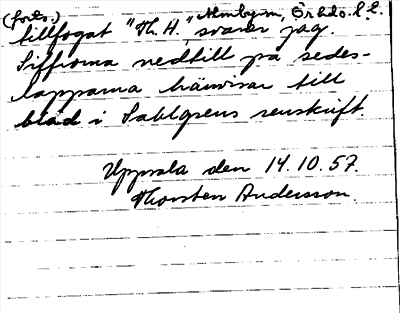 (forts.) Almbyern, Örebro l. E.
tillfogat "Th. A." svarar jag.
Siffrorna nedtill på sedes-
lapparna hänvisar till
blad i Sahlgrens renskrift.
Uppsala den 14.10.57.
Thorsten Andersson.